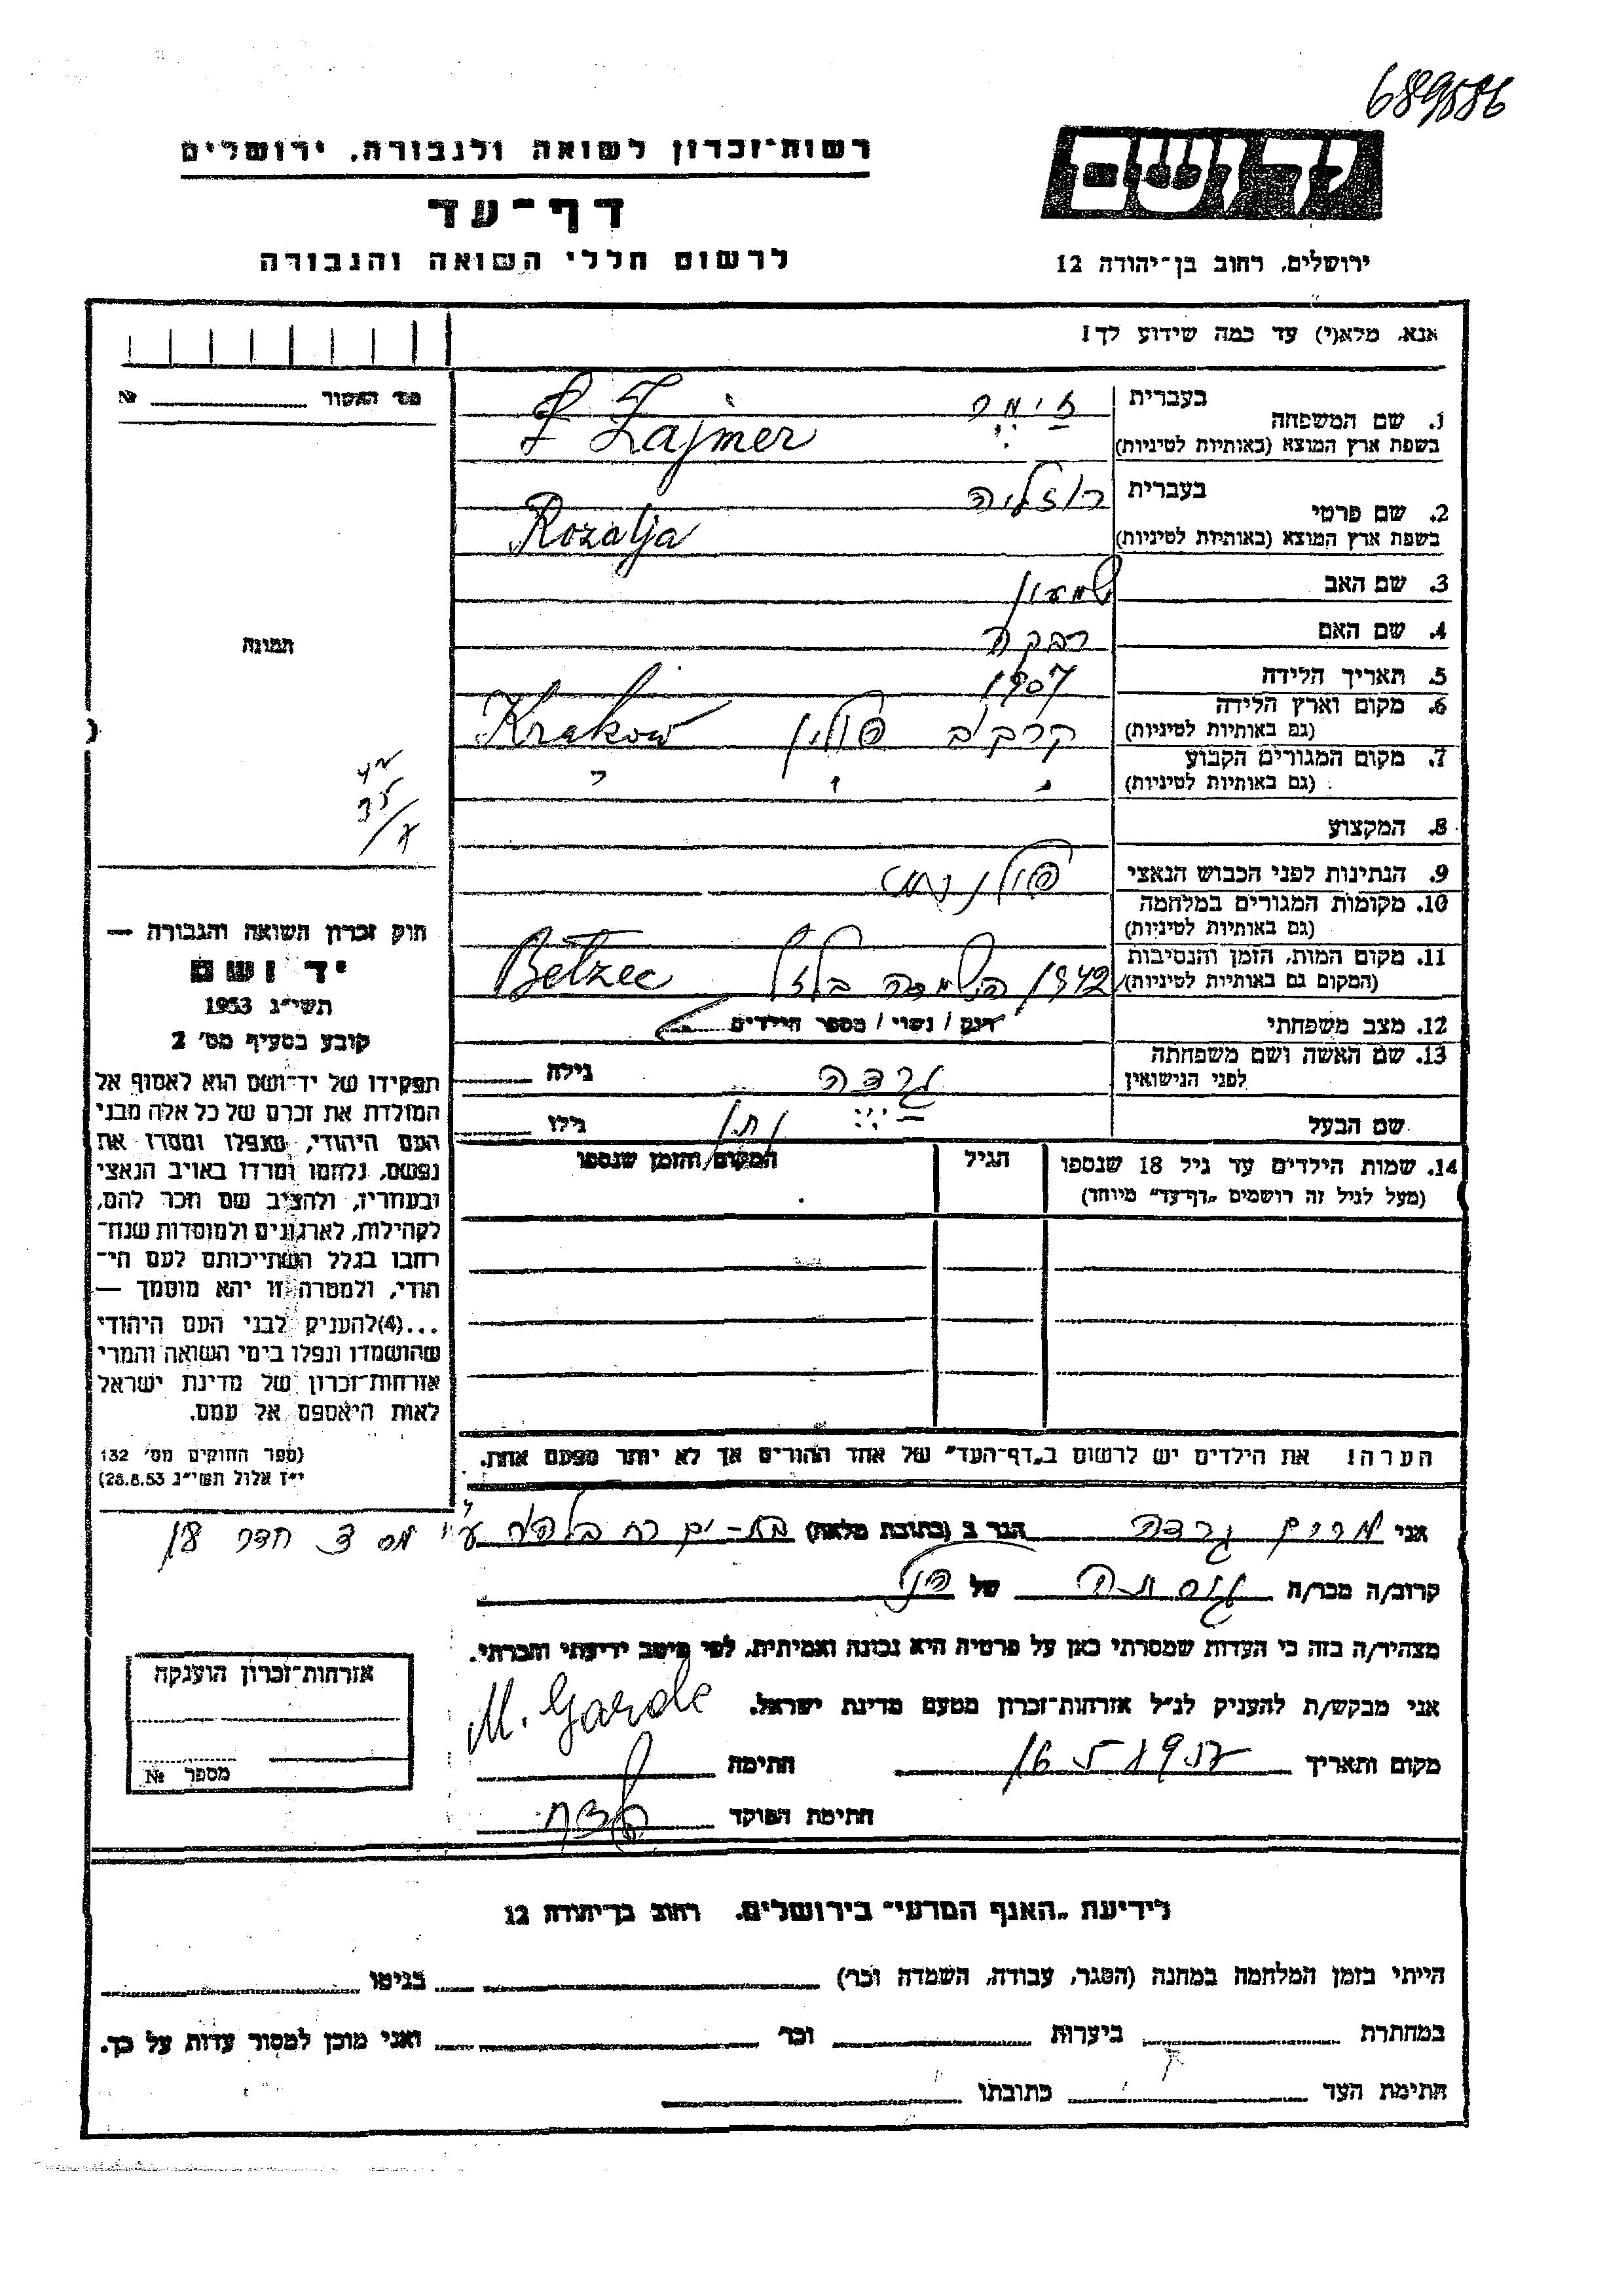 689586
רשות־זכרון לשואה ולגבורה, ירושלים
דף־עד
לרשום חללי השואה והגבורה
יד ושם
ירושלים, רחוב בן־יהודה 12
אנא, מלא(י) עד כמה שידוע לך!
מס׳ האשור №
1. שם המשפחה
בעברית זימר
בשפת ארץ המוצא (באותיות לטיניות) Zajmer
2. שם פרטי
בעברית רוזליה
בשפת ארץ המוצא (באותיות לטיניות) Rozalja
3. שם האב שמעון
4. שם האם רבקה
5. תאריך הלידה 1907
6. מקום וארץ הלידה
(גם באותיות לטיניות) קרקוב פולין Krakow
7. מקום המגורים הקבוע
(גם באותיות לטיניות) " " "
8. המקצוע
9. הנתינות לפני הכבוש הנאצי פולנית
10. מקומות המגורים במלחמה
(גם באותיות לטיניות)
11. מקום המות, הזמן והנסיבות
(המקום גם באותיות לטיניות) 1942 השמדה בלזץ Bełzec
12. מצב משפחתי רוק / נשוי / מספר הילדים
13. שם האשה ושם משפחתה
לפני הנישואין גרדה גילה
שם הבעל גילו
14. שמות הילדים עד גיל 18 שנספו
(מעל לגיל זה רושמים „דף־עד" מיוחד)
הגיל
המקום והזמן שנספו
הערה! את הילדים יש לרשום ב„דף־העד" של אחד ההורים אך לא יותר מפעם אחת.
תמונה
חוק זכרון השואה והגבורה —
יד ושם
תשי״ג 1953
קובע בסעיף מס׳ 2
תפקידו של יד־ושם הוא לאסוף אל
המולדת את זכרם של כל אלה מבני
העם היהודי, שנפלו ומסרו את
נפשם, נלחמו ומרדו באויב הנאצי
ובעוזריו, ולהציב שם וזכר להם,
לקהילות, לארגונים ולמוסדות שנח־
רבו בגלל השתייכותם לעם הי־
הודי, ולמטרה זו יהא מוסמך —
...(4)להעניק לבני העם היהודי
שהושמדו ונפלו בימי השואה והמרי
אזרחות־זכרון של מדינת ישראל
לאות היאספם אל עמם.
(ספר החוקים מס׳ 132
י״ז אלול תשי״ג 28.8.53)
אני מרים גרדה הגר ב (כתובת מלאה) בת-ים רח
קרוב/ה מכר/ה גיסתה של הנ״ל
מצהיר/ה בזה כי העדות שמסרתי כאן על פרטיה היא נכונה ואמיתית, לפי מיטב ידיעתי והכרתי.
אני מבקש/ת להעניק לנ״ל אזרחות־זכרון מטעם מדינת ישראל.
M. Garde
מקום ותאריך חתימה
חתימת הפוקד
אזרחות־זכרון הוענקה
מספר №
לידיעת „האגף המדעי" בירושלים, רחוב בן־יהודה 12
הייתי בזמן המלחמה במחנה (הסגר, עבודה, השמדה וכו׳) בגיטו
במחתרת ביערות וכו׳ ואני מוכן למסור עדות על כך.
חתימת העד כתובתו